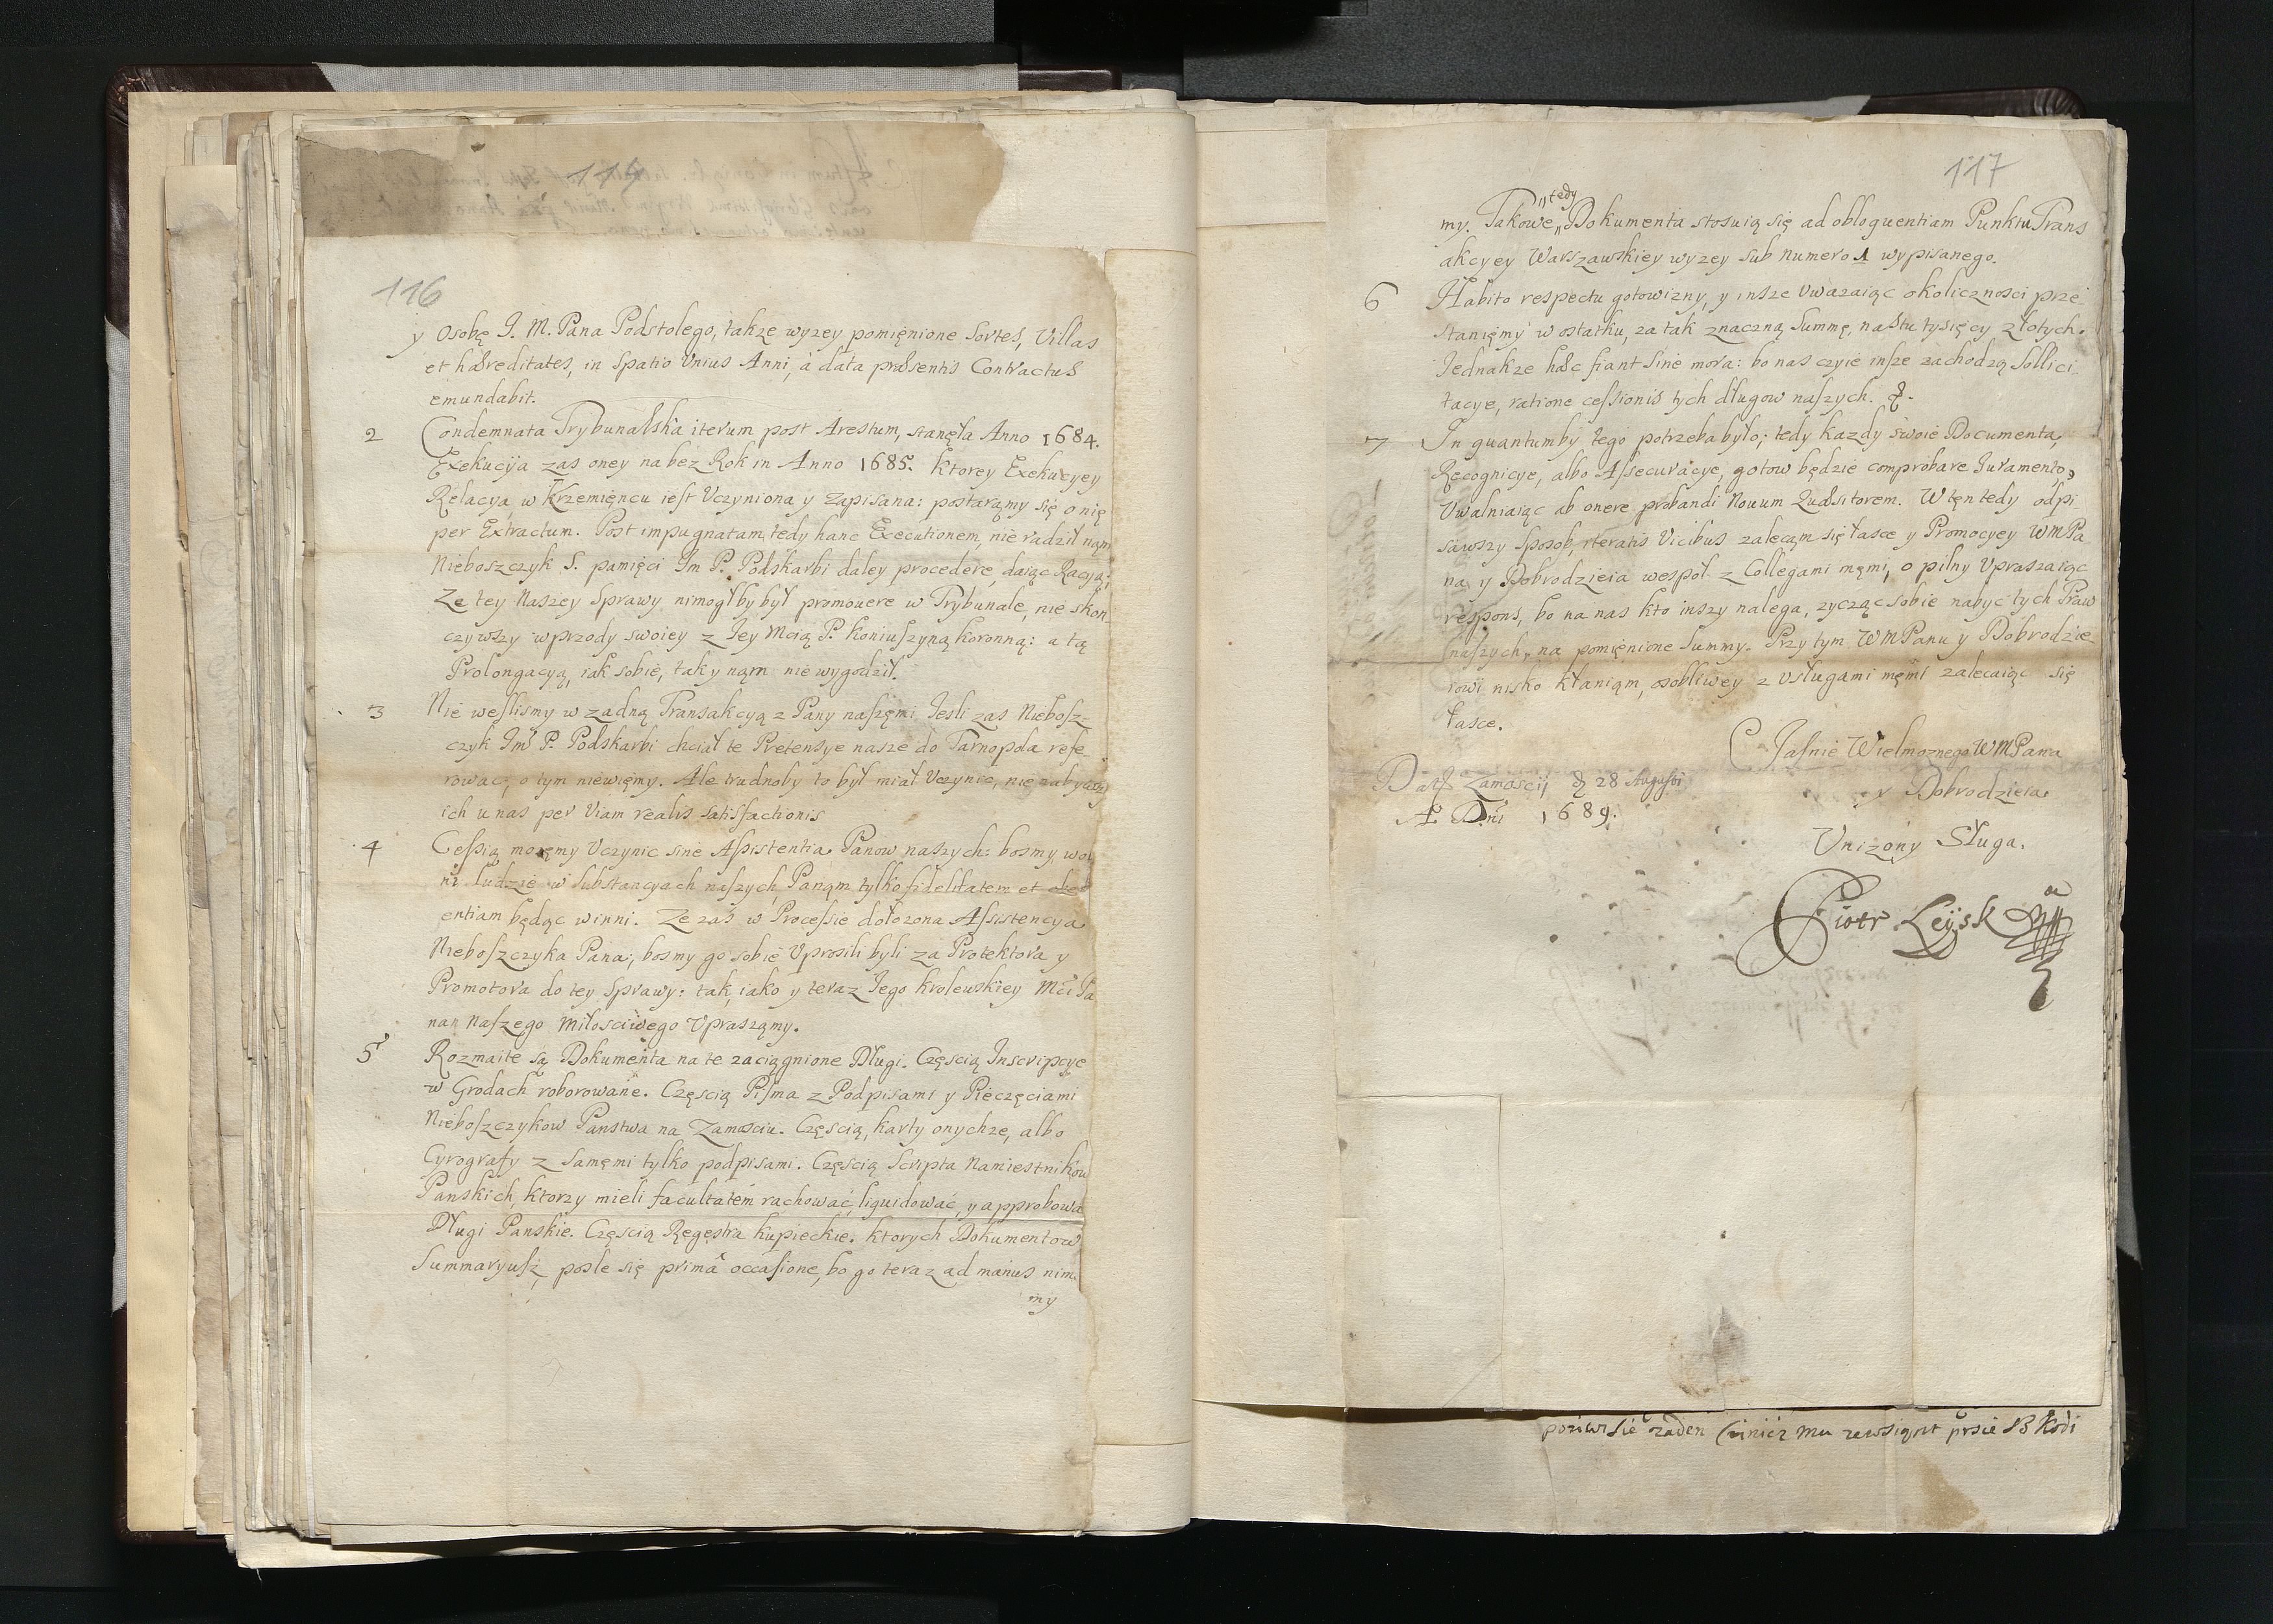 114
116
y Osobę J. M. Pana Podstolego, także wyzey pomięnione Sortes, Villas
et hæreditates, in Spatio Vnius Anni, à data præsentis Contractus
emundabit.
2 Condemnata Trybunalska iterum post Arestum, stanęła Anno 1684.
Exekucÿa zas oney na bez Rok in Anno 1685. Ktorey Exekucyey
Relacya, w Krzemięncu iest Vczyniona y zapisana: postaramy się o nię
per Extractum. Post impugnatam tedy hanc Executionem, nie radził nąm
Nieboszczyk S. pamięci Jm P. Podskarbi daley procedere, daiąc Racyą;
Ze tey Naszey Sprawy nimogłby był promouere w Trybunale, nie skon-
czywszy wprzody swoiey z Jey Mcią P. Koniuszyną koronną: a tą
Prolongacyą, iak sobie, tak y nąm nie wygodził.
3 Nie weslismy w zadną Transakcyą z Pany naszęmi. Jesli zas Niebosz-
czyk Jm P. Podskarbi chciał te Pretensye nasze do Tarnopola refe
rowac, o tym niewięmy. Ale trudnoby to był miał Vczynic, nie nabywszy
ich u nas per Viam realis satisfactionis
4 Cessią możęmy Vczynic sine Assistentia Panow naszych: bosmy wol
ni ludzie w substancyach naszych, Panąm tylko fidelitatem et obedi
entiam będąc winni. Ze zas w Processie dołozona Assistencya
Nieboszczyka Pana, bosmy go sobie Vprosili byli za Protektora y
Promotora do tey Sprawy: tak, iako y teraz Jego krolewskiey Mci Pa
nan Naszego Miłosciwego Vpraszamy.
5 Rozmaite są Dokumenta na te zaciągnione Długi. Częscią Inscripcye
w Grodach roborowane. Częscią Pisma z Podpisami y Pieczęciami
Nieboszczykow Panstwa na Zamosciu. Częscią, karty onychze, albo
Cyrografy z samęmi tylko podpisami. Częscią Scripta Namiestników
Panskich, ktorzy mieli facultatem rachować, liquidować, y approbowa
Długi Panskie. Częscią Regestra kupieckie. ktorych Dokumentow
Summaryusz, posle się primâ occasione, bo go teraz ad manus nima
my
117
tedy
my. Takowe Dokumenta stosuią się ad obloquentiam Punktu Trans
akcyey Warszawskiey wyzey sub numero 1 wypisanego.
6 Habito respectu gotowizny, y insze Vwazaiąc okolicznosci prze
stanięmy w ostatku, za tak znaczną Summę, na Stu tysięcy złotych.
Jednakze hæc fiant sine mora: bo nas czyie insze zachodzą Sollici-
tacye, ratione cessionis tych długow naszych. &.
7 In quantumby tego potrzeba było; tedy kazdy swoie Documenta,
Recognicye, albo Assecuracye, gotow będzie comprobare Iuramento,
Vwalniaiąc ab onere probandi Nouum Quæsitorem. W tęn tedy odpi-
sawszy Sposob, iteratis Vicibus zalecąm się łasce y Promocyey WMPa
na y Dobrodzieia wespoł z Collegami męmi, o pilny Vpraszaiąc
respons, bo na nas kto inszy nalega, zycząc sobie nabyc tych Praw
naszych, na pomięnione Summy. Przy tym WMPanu y Dobrodzie
iowi nisko kłaniąm, osobliwey z Vsługami męmi zalecaiąc się
łasce.
Jasnie Wielmoznego WMPana
y Dobrodzieia
Dat Zamoscij d 28 Augusti
A. Dni 1689.
Vnizony Sługa.
Piotr
zaden
mu